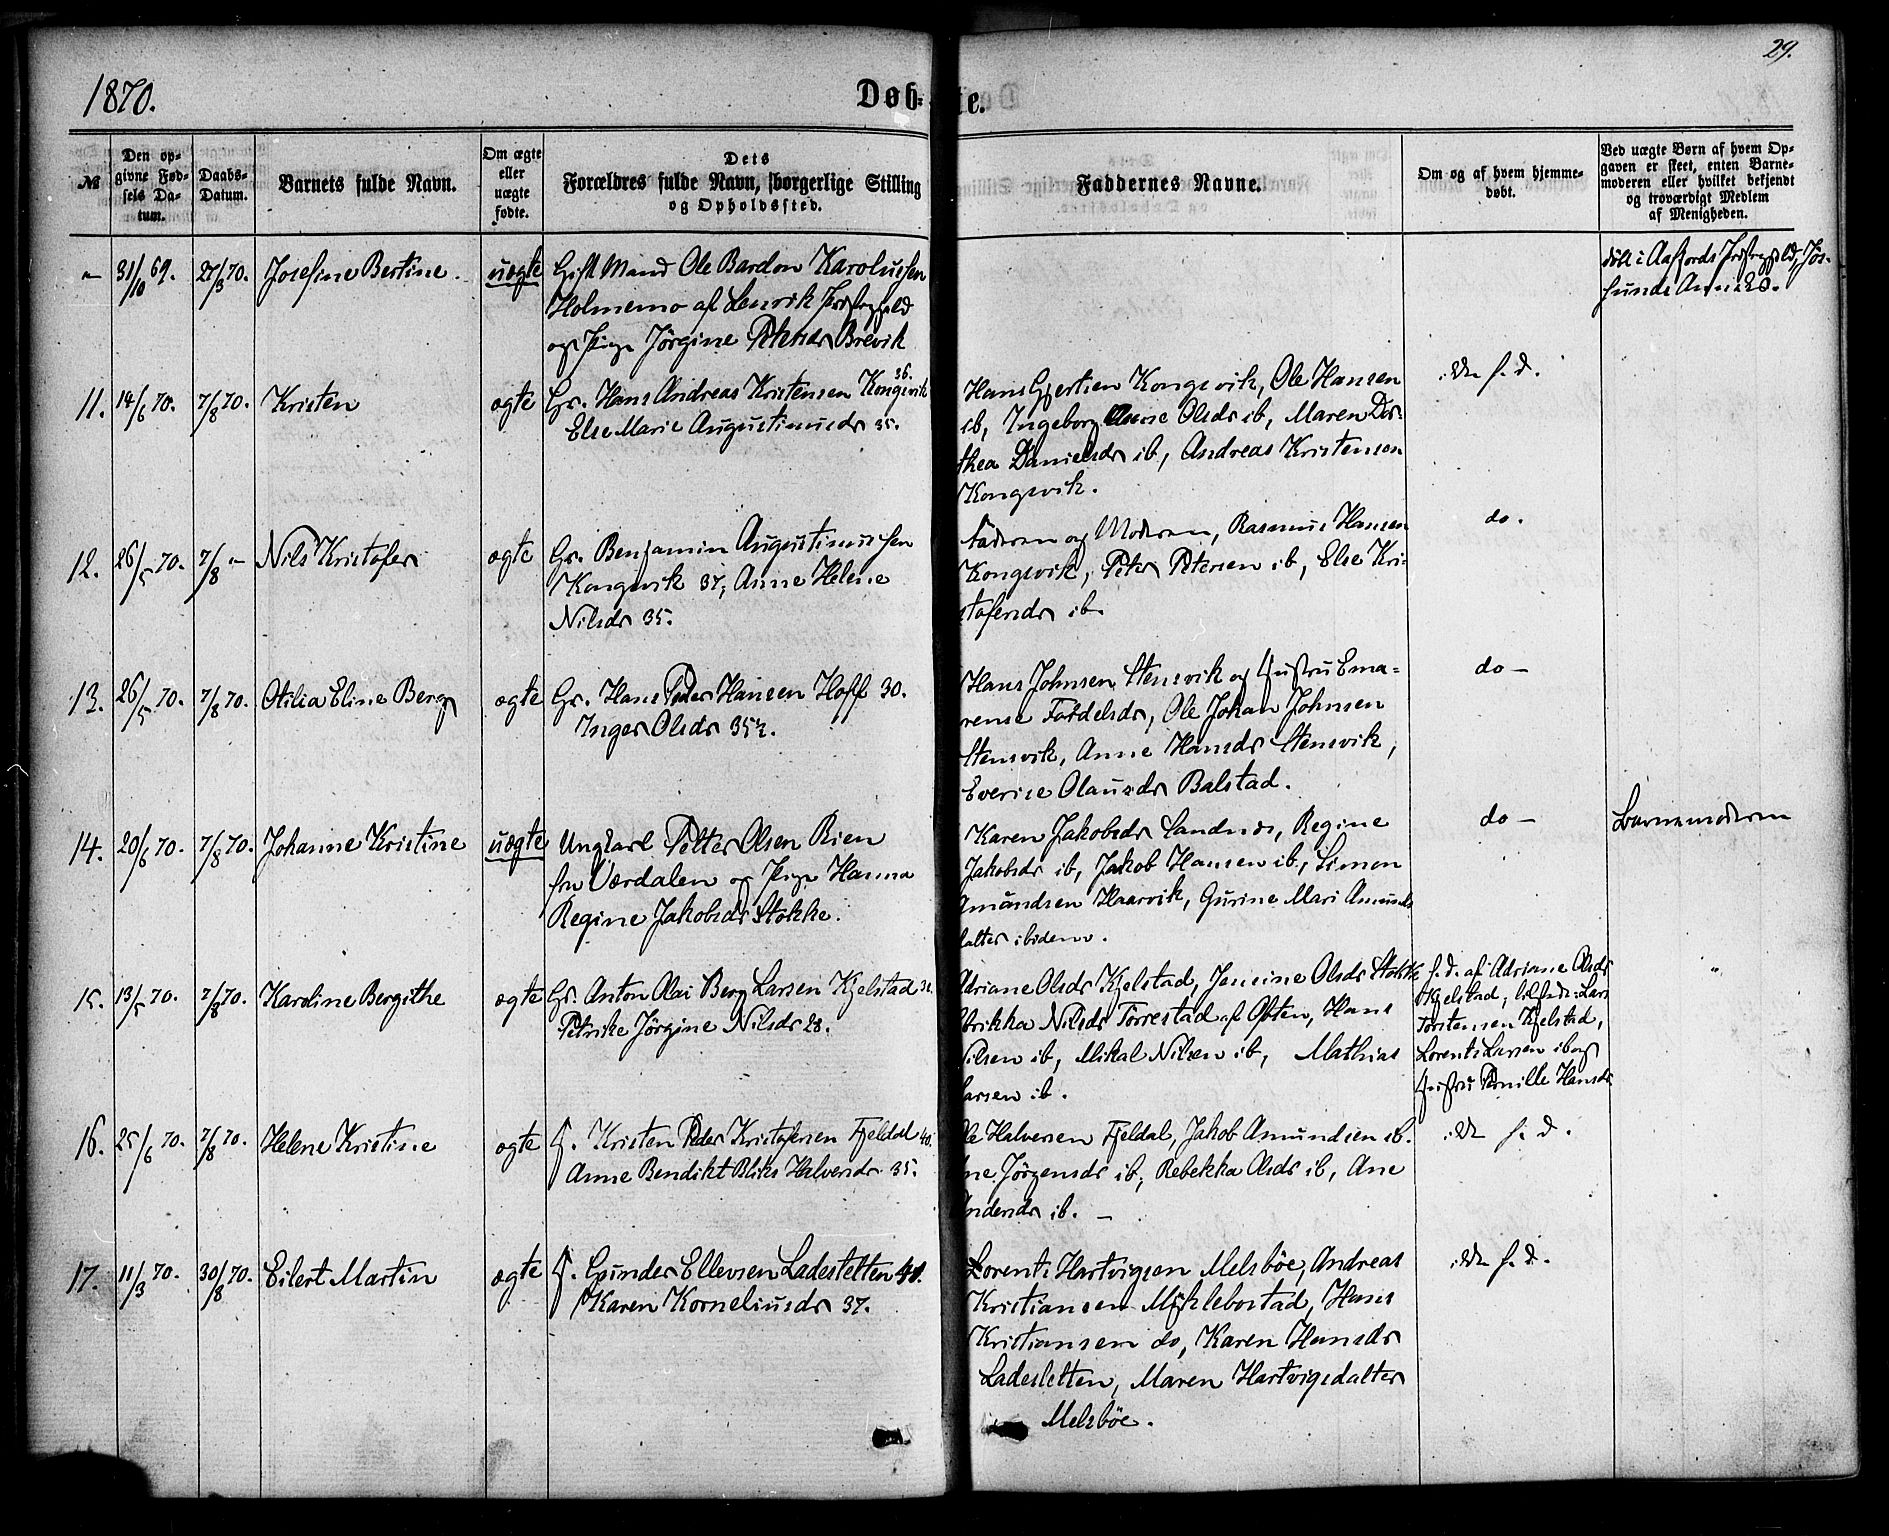 29.
1870.
Døb-te.
№
Den opgivne Fødsels Datum.
Daabs-Datum.
Barnets fulde Navn.
Om ægte eller uægte fødte.
Dets Forældres fulde Navn, borgerlige Stilling og Opholdssted.
Faddernes Navne.
Om og af hvem hjemmedøbt.
Ved uægte Børn af hvem Opgaven er skeet, enten Barnemoderen eller hvilket bekjendt og troværdigt Medlem af Menigheden.
" 31/10 69. 27/3 70. Josefine Bertine. uægte Gift Mand Ole Bardon Karolussen
Holmemo af Lenvik Præstegjeld
og Pige Jörgine Petersdr Brevik
döbt i Aafjords Præstegjeld, Jøs-
sunds Annex.
11. 14/6 70. 7/8 70. Kristen ægte Gr. Hans Andreas Kristensen Kongsvik 36.
Else Marie Augustinusdr 35.
Hans Gjertsen Kongsvik, Ole Hansen
ib, Ingeborg Anne Olsdr ib, Maren Dor-
thea Danielsdr ib, Andreas Kristensen
Kongsvik.
ikke h. d.
12. 26/5 70. 7/8 " Nils Kristofer ægte Gr. Benjamin Augustinussen
Kongsvik 37, Anne Helene
Nilsdr 35.
Faderen og Moderen, Rasmus Hansen
Kongsvik, Peter Petersen ib, Else Kri-
stofersdr ib.
do.
13. 26/5 70. 7/8 70. Otilia Eline Berg ægte Gr. Hans Peder Hansen Hoff 30.
Inger Olsdr 35½.
Hans Johnsen Stensvik og Hustru Ema-
rense Fordelsdr, Ole Johan Johnsen
Stensvik, Anne Hansdr Stensvik,
Everise Olausdr Balstad.
do –
14. 20/6 70. 7/8 70. Johanne Kristine uægte Ungkarl Petter Olsen Rien
fra Værdalen og Pige Hanna
Regine Jakobsdr Stokke.
Karen Jakobsdr Sandnes, Regine
Jakobsdr ib, Jakob Hansen ib, Simon
Amundsen Haarvik, Gurine Mari Amunds
datter ibidem.
do –
Barnemoderen
15. 13/5 70. 7/8 70. Karoline Bergithe ægte Gr. Anton Olai Berg Larsen Kjelstad
Petrike Jörgine Nilsdr 28.
Adriane Olsdr Kjelstad, Jensine Olsdr Stokke
Nilsdr Torrestad af Ofoten, Hans
Nilsen ib, Mikal Nilsen ib, Mathias
Larsen ib.
h. d. af Adriane Olsdr
Kjelstad, tilstede: Lars
Torstensen Kjelstad,
Lorents Larsen ib og
Hustru Pernille Hansdr
"
16. 25/6 70. 7/8 70. Helene Kristine ægte I. Kristen Peder Kristofersen Fjeldal 40.
Anne Bendikt Bliks Halvorsdr 35.
Ole Halversen Fjeldal, Jakob Amundsen ib.
Ane Jörgensdr ib, Rebekka Olsdr ib, Ane
Andersdr ib. –
ikke h. d.
"
17. 11/3 70. 30/8 70. Eilert Martin ægte I. Gunder Ellevsen Ladesletten 41.
Karen Korneliusdr 37.
Lorents Hartvigsen Melsböe, Andreas
Kristiansen Myklebostad, Hans
Kristiansen do, Karen Hansdr
Ladesletten, Maren Hartvigsdatter
Melsböe.
ikke h. d.